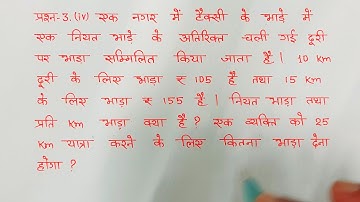 प्रश्न-3.(iv) एक नगर में टैक्सी के भाड़े में
एक नियत भाड़े के अतिरिक्त चली गई दूरी
पर भाड़ा सम्मिलित किया जाता है। 10 km
दूरी के लिए भाड़ा ₹ 105 है तथा 15 km
के लिए भाड़ा ₹ 155 है। नियत भाड़ा तथा
प्रति km भाड़ा क्या है? एक व्यक्ति को 25
km यात्रा करने के लिए कितना भाड़ा देना
होगा?